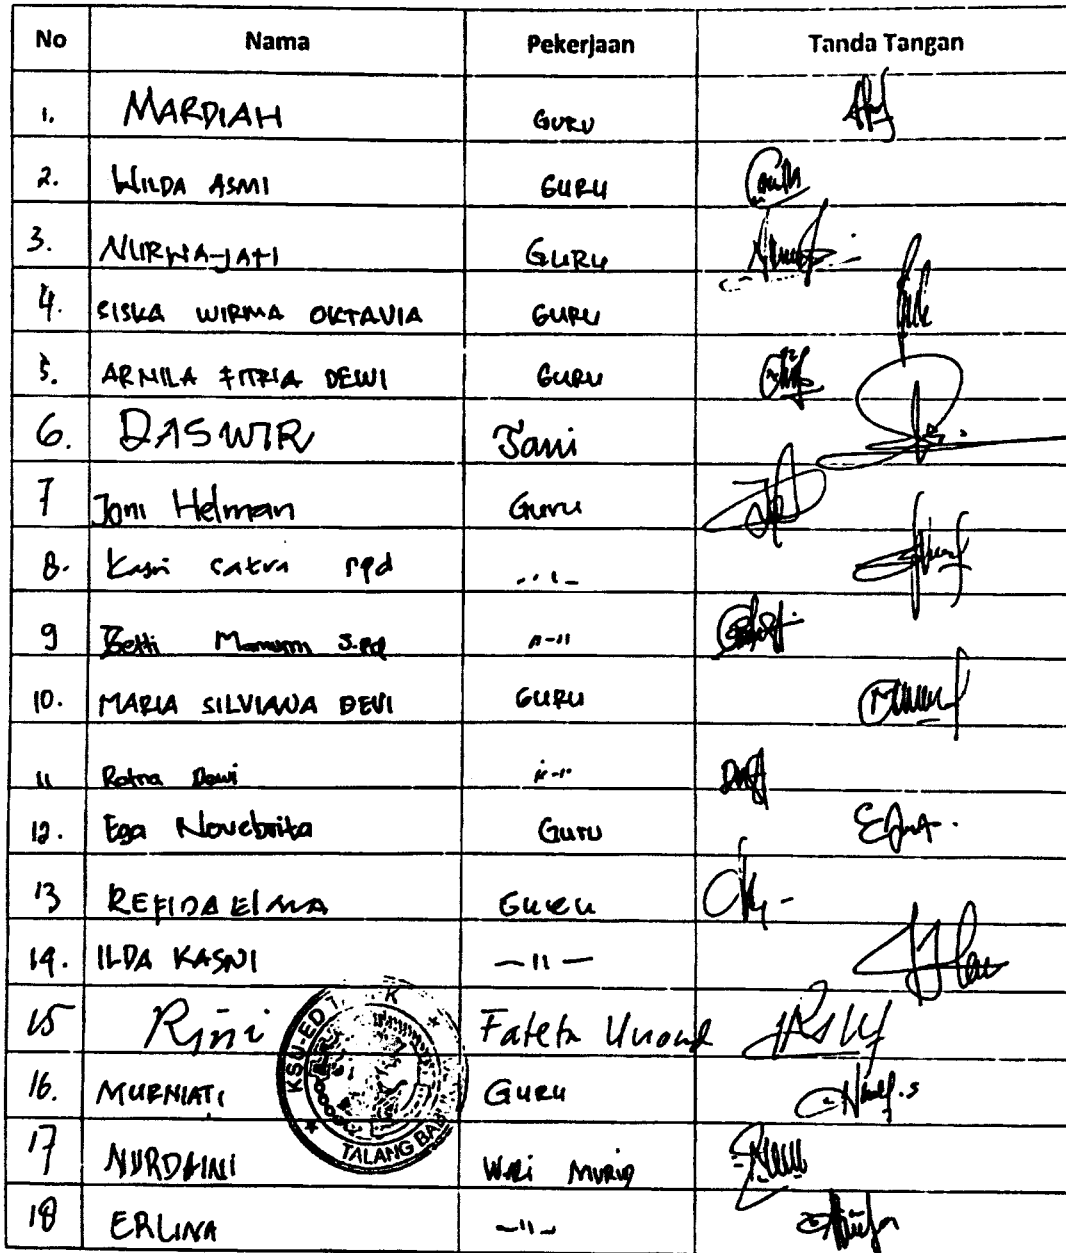 No Nama Pekerjaan Tanda Tangan
1. MARDIAH GURU
2. WILDA ASMI GURU
3. NURHAJATI GURU
4. SISKA WIRMA OKTAVIA GURU
5. ARMILA FITRIA DEWI GURU
6. DASWIR Tani
7 Joni Helman Guru
8. Kasri satra spd -"-
9 Betti S.Pd "-"
10. MARIA SILVIANA DEVI GURU
11 Ratna Dewi "-"
12. Ega Novebrita Guru
13 REFIDA ELMA GURU
14. ILDA KASNI -"-
15 Rini Fateta Unand
16. MURNIATI GURU
17 NURDAINI Wali MURID
18 ERLINA -"-
KSU-ED T. K
TALANG BAB